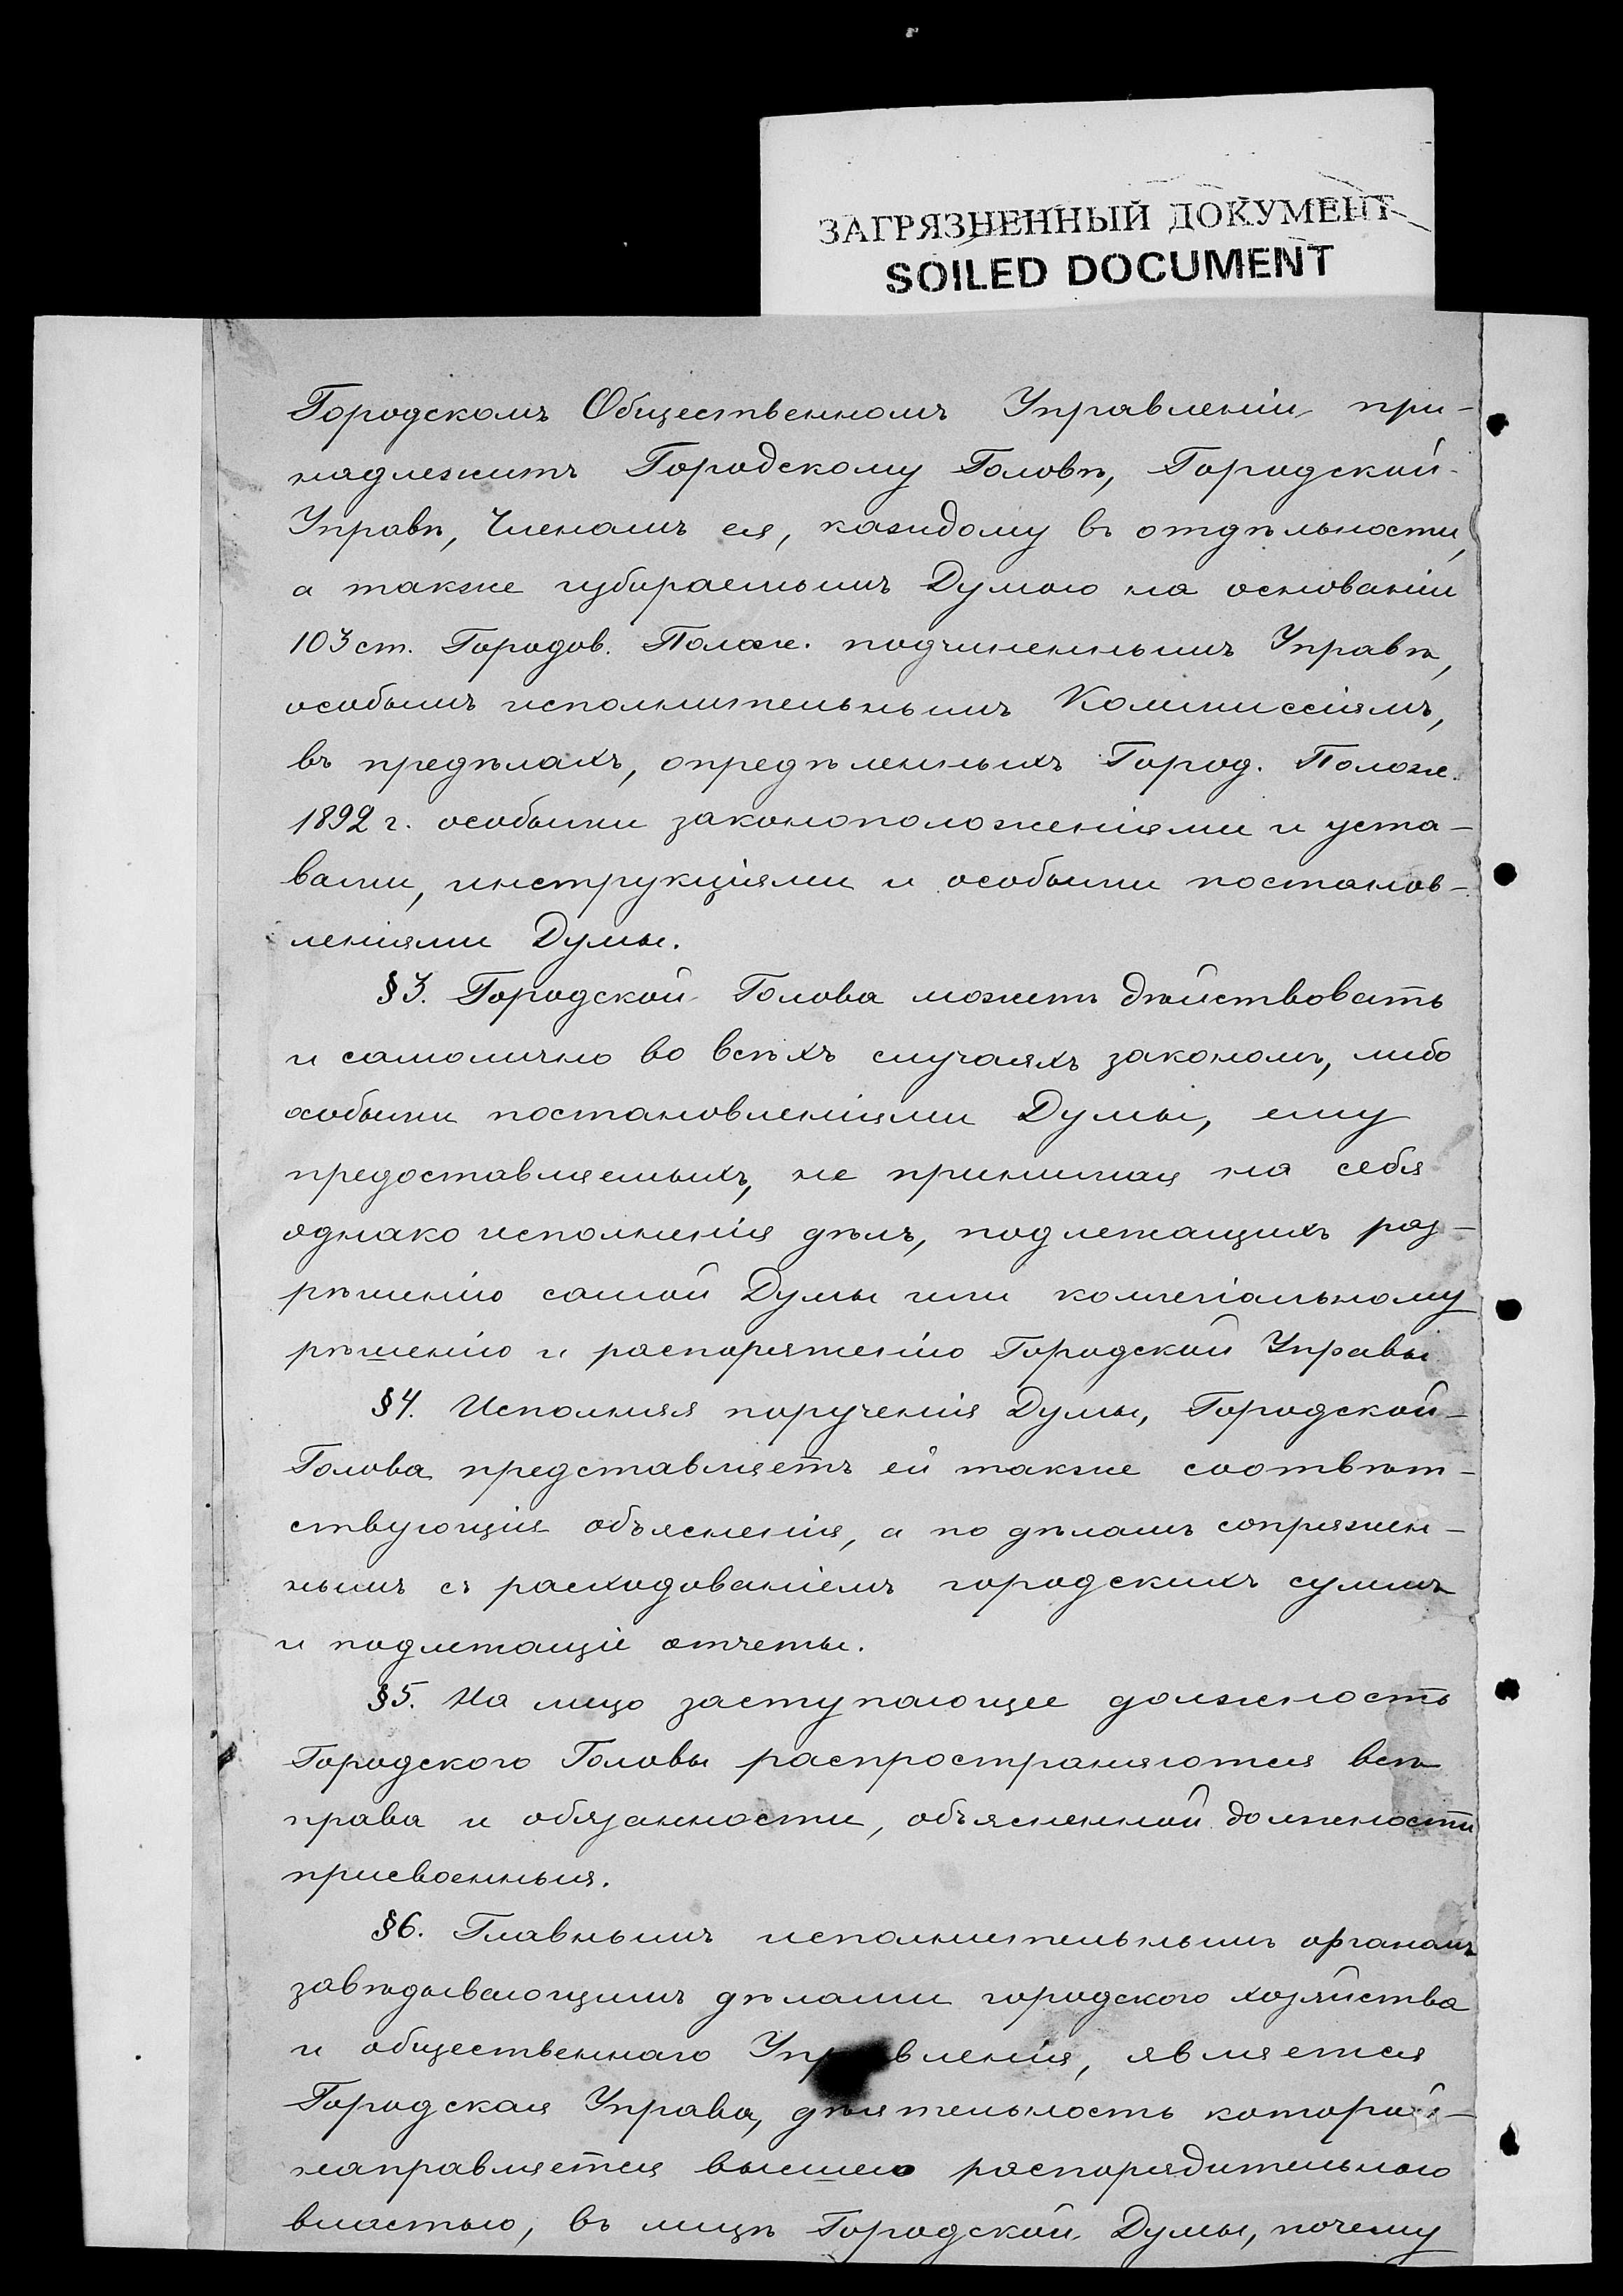 ЗАГРЯЗНЕННЫЙ ДОКУМЕНТ
SOILED DOCUMENT
Городскомъ Общественномъ Управленіи при-
надлежитъ Городскому Головѣ, Городской
Управѣ, Членамъ ея, каждому въ отдѣльности,
а также избираемымъ Думою на основаніи
103 ст. Городов. Полож. подчиненнымъ Управѣ,
особымъ исполнительнымъ Коммиссіямъ,
въ предѣлахъ, опредѣленныхъ Город. Полож.
1892 г. особыми законоположеніями и уста-
вами, инструкціями и особыми постанов-
леніями Думы.
§3. Городской Голова можетъ дѣйствовать
и самолично во всѣхъ случаяхъ закономъ, либо
особыми постановленіями Думы, ему
предоставляемыхъ, не принимая на себя
однако исполненія дѣлъ, подлежащихъ раз-
рѣшенію самой Думы или коллегіальному
рѣшенію и распоряженію Городской Управы
§4. Исполняя порученія Думы, Городской
Голова представляетъ ей также соотвѣт-
ствующія объясненія, а по дѣламъ сопряжен-
нымъ съ расходованіемъ городскихъ суммъ
и подлежащіе отчеты.
§5. На лицо заступающее должность
Городского Головы распространяются всѣ
права и обязанности, объясненной должности
присвоенныя.
§6. Главнымъ исполнительнымъ органомъ
завѣдывающимъ дѣлами городского хозяйства
и общественнаго Управленія, является
Городская Управа, дѣятельность которой
направляется высшею распорядительною
властью, въ лицѣ Городской Думы, почему